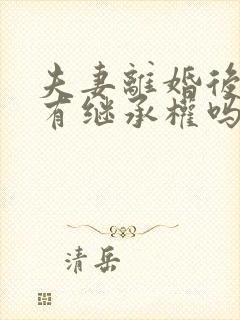 夫妻離婚後
有继承權吗
清岳